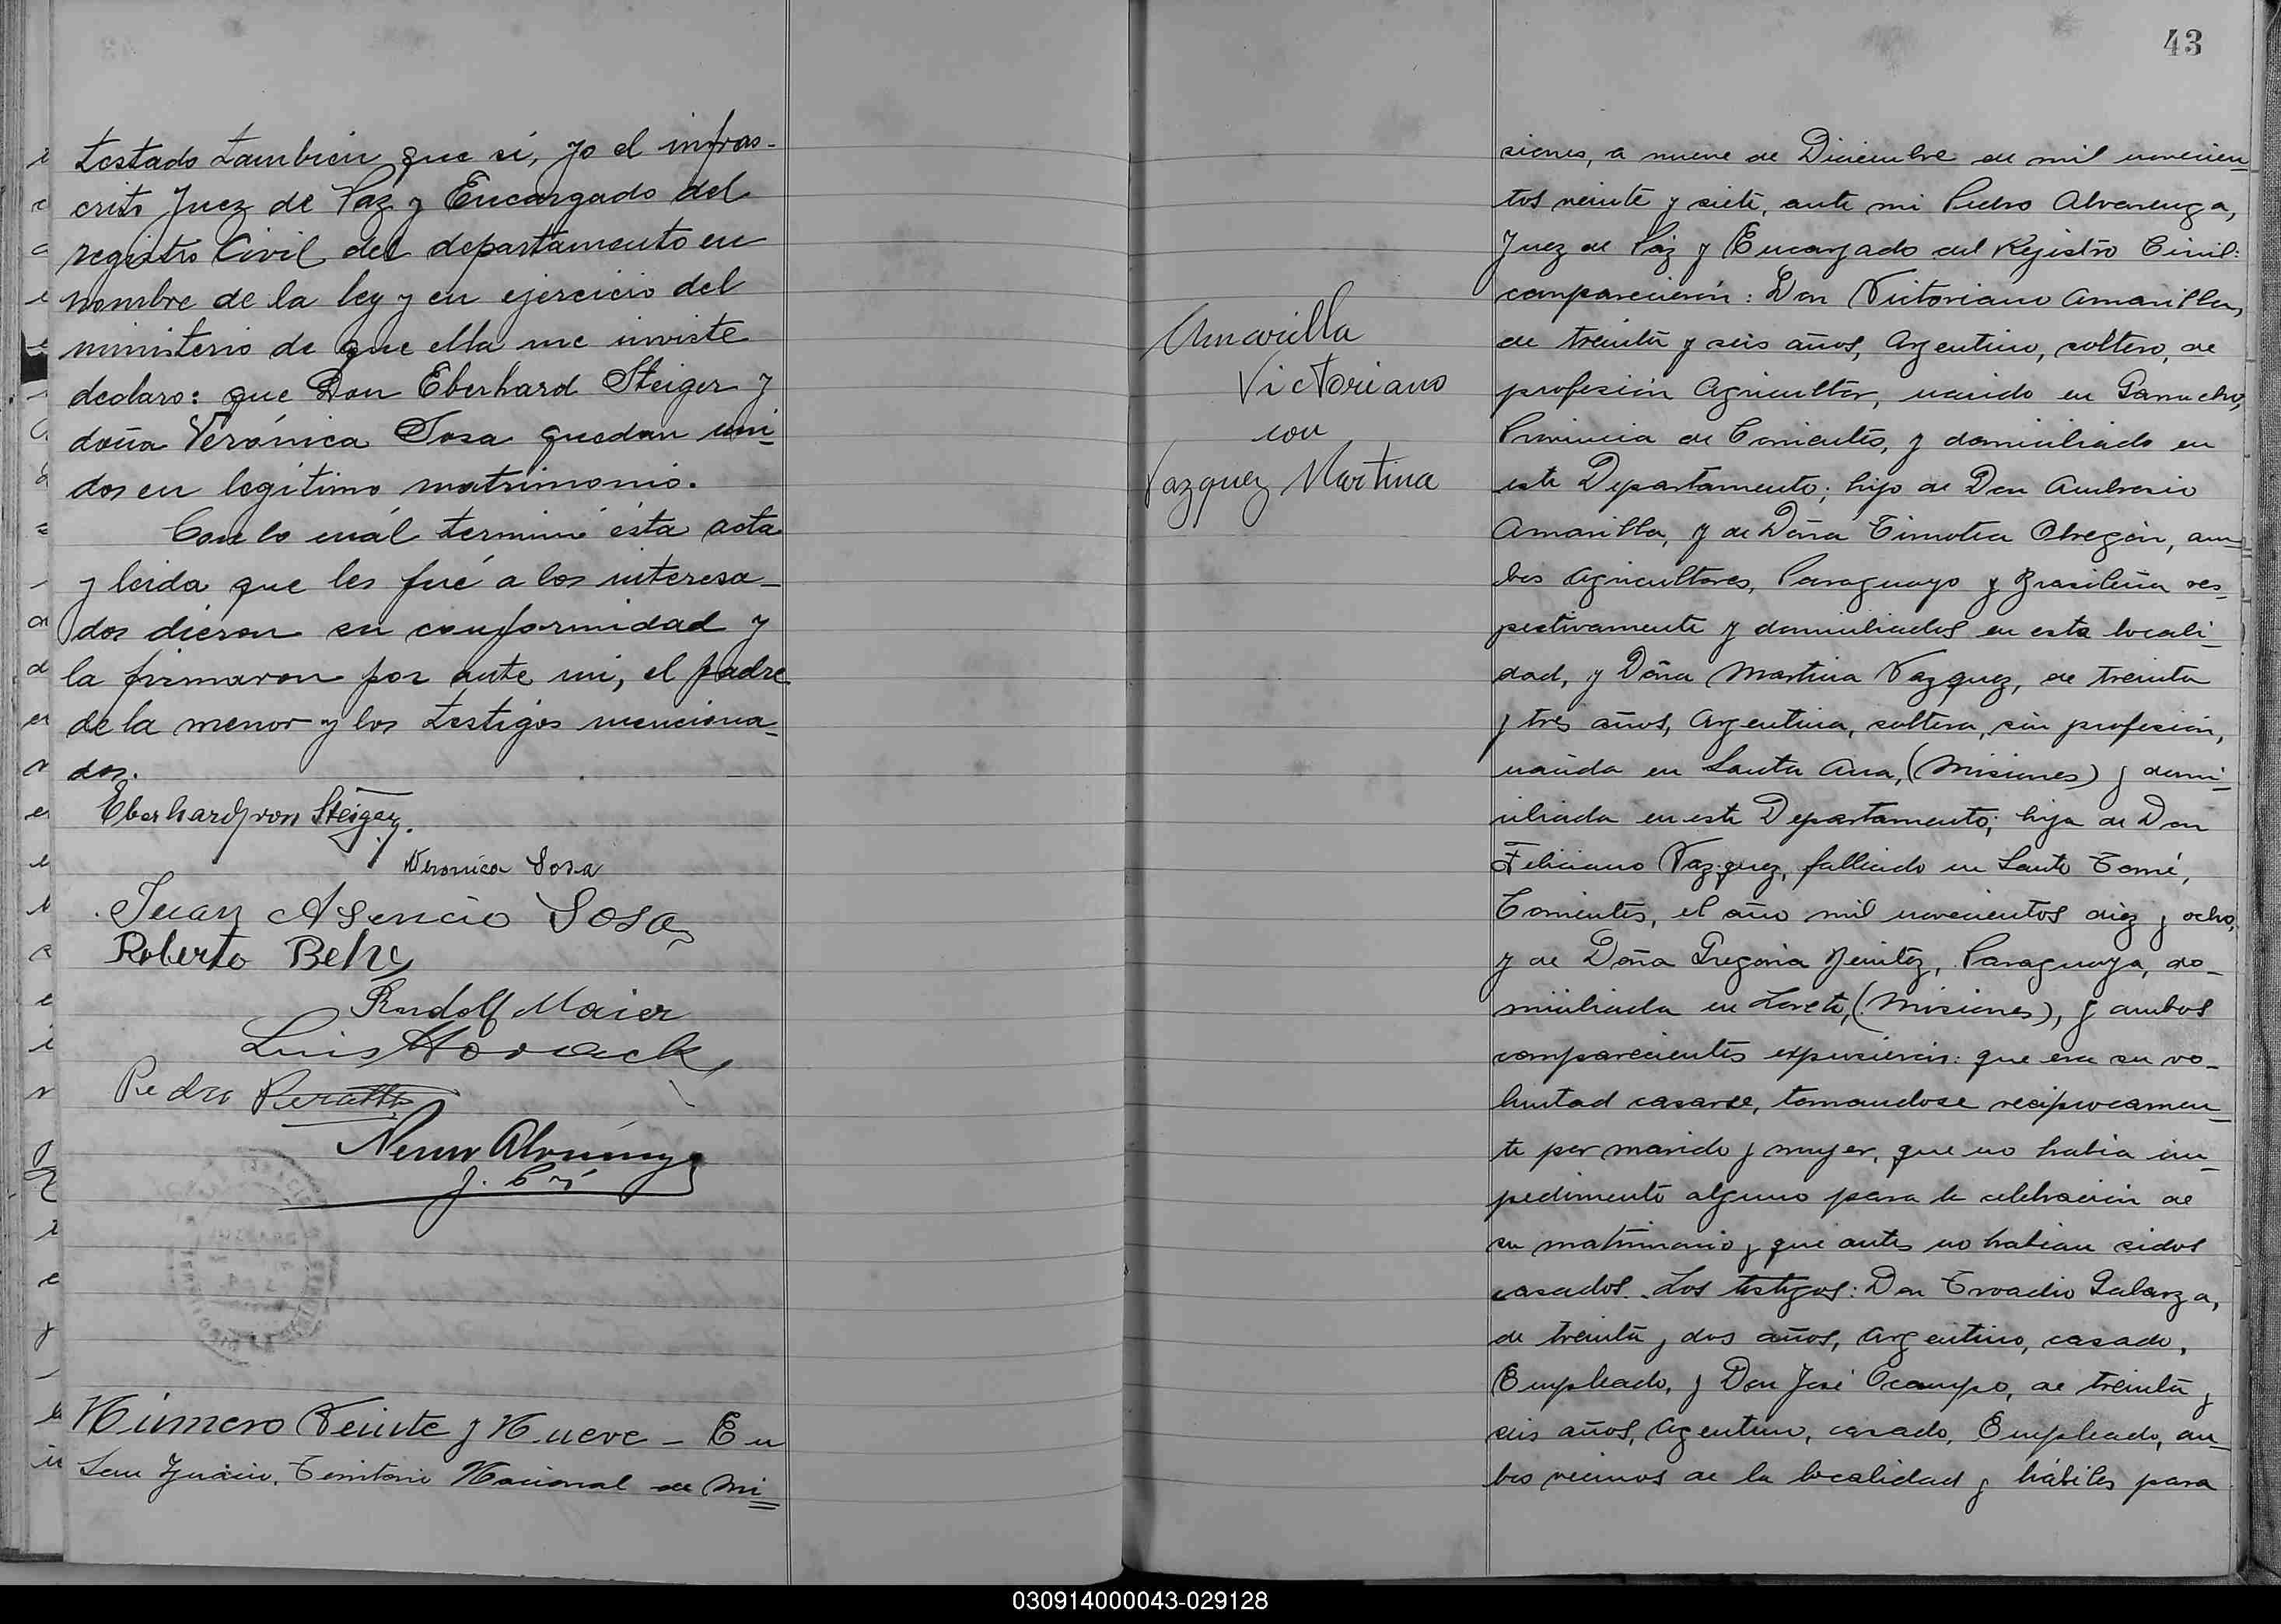 testado tambien que si, yo el infras-
crito Juez de Paz y Encargado del
registro Civil del departamento en
nombre de la ley y en ejercicio del
ministerio de que ella me inviste
declaro: que Don Eberhard Steiger y
doña Verónica Sosa quedan uni-
dos en legítimo matrimonio.
Con lo cuál terminé ésta acta
y leida que les fué a los interesa-
dos dieron su conformidad y
la firmaron por ante mi, el padre
de la menor y los testigos menciona-
dos.
Eberhard von Steiger.
Veronica Sosa
Juan Asencio Sosa
Roberto Behy
Rudolf Maier
Luis Horack
Pedro
Número Veinte y Nueve - En
San Ignacio, Territorio Nacional de Mi=
43
Amarilla
Victoriano
con
Vazquez Martina
siones, a nueve de Diciembre de mil novecien-
tos veinte y siete, ante mi Pedro Alvarenga,
Juez de Paz y Encargado del Rejistro Civil:
comparecierón: Don Victoriano Amarilla,
de treinta y seis años, Argentino, soltero, de
profesión Agricultor, nacido en Garruchos,
Provincia de Corrientes, y domiciliado en
este Departamento; hijo de Don Ambrosio
Amarilla, y de Doña Timotea Obregón, am-
bos Agricultores, Paraguayo y Brasileña res-
pectivamente y domiciliados en esta locali-
dad, y Doña Martina Vazquez, de treinta
y tres años, Argentina, soltera, sin profesión,
nacida en Santa Ana, (Misiones) y domi-
ciliada en este Departamento; hija de Don
Feliciano Vazquez, fallecido en Santo Tomé,
Corrientes, el año mil novecientos diez y ocho,
y de Doña Gregoria Benitez, Paraguaya, do-
miciliada en Loreto, (Misiones), y ambos
comparecientes expusierón: que era su vo-
luntad casarse, tomandose reciprocamen-
te por marido y mujer, que no habia im-
pedimento alguno para la celebración de
su matrimonio y que antes no habian sidos
casados. Los testigos: Don Troadio Galarza,
de treinta y dos años, Argentino, casado,
Empleado, y Don José Ocampo, de treinta y
seis años, Agentino, casado, Empleado, am-
bos vecinos de la localidad y hábiles para
030914000043-029128